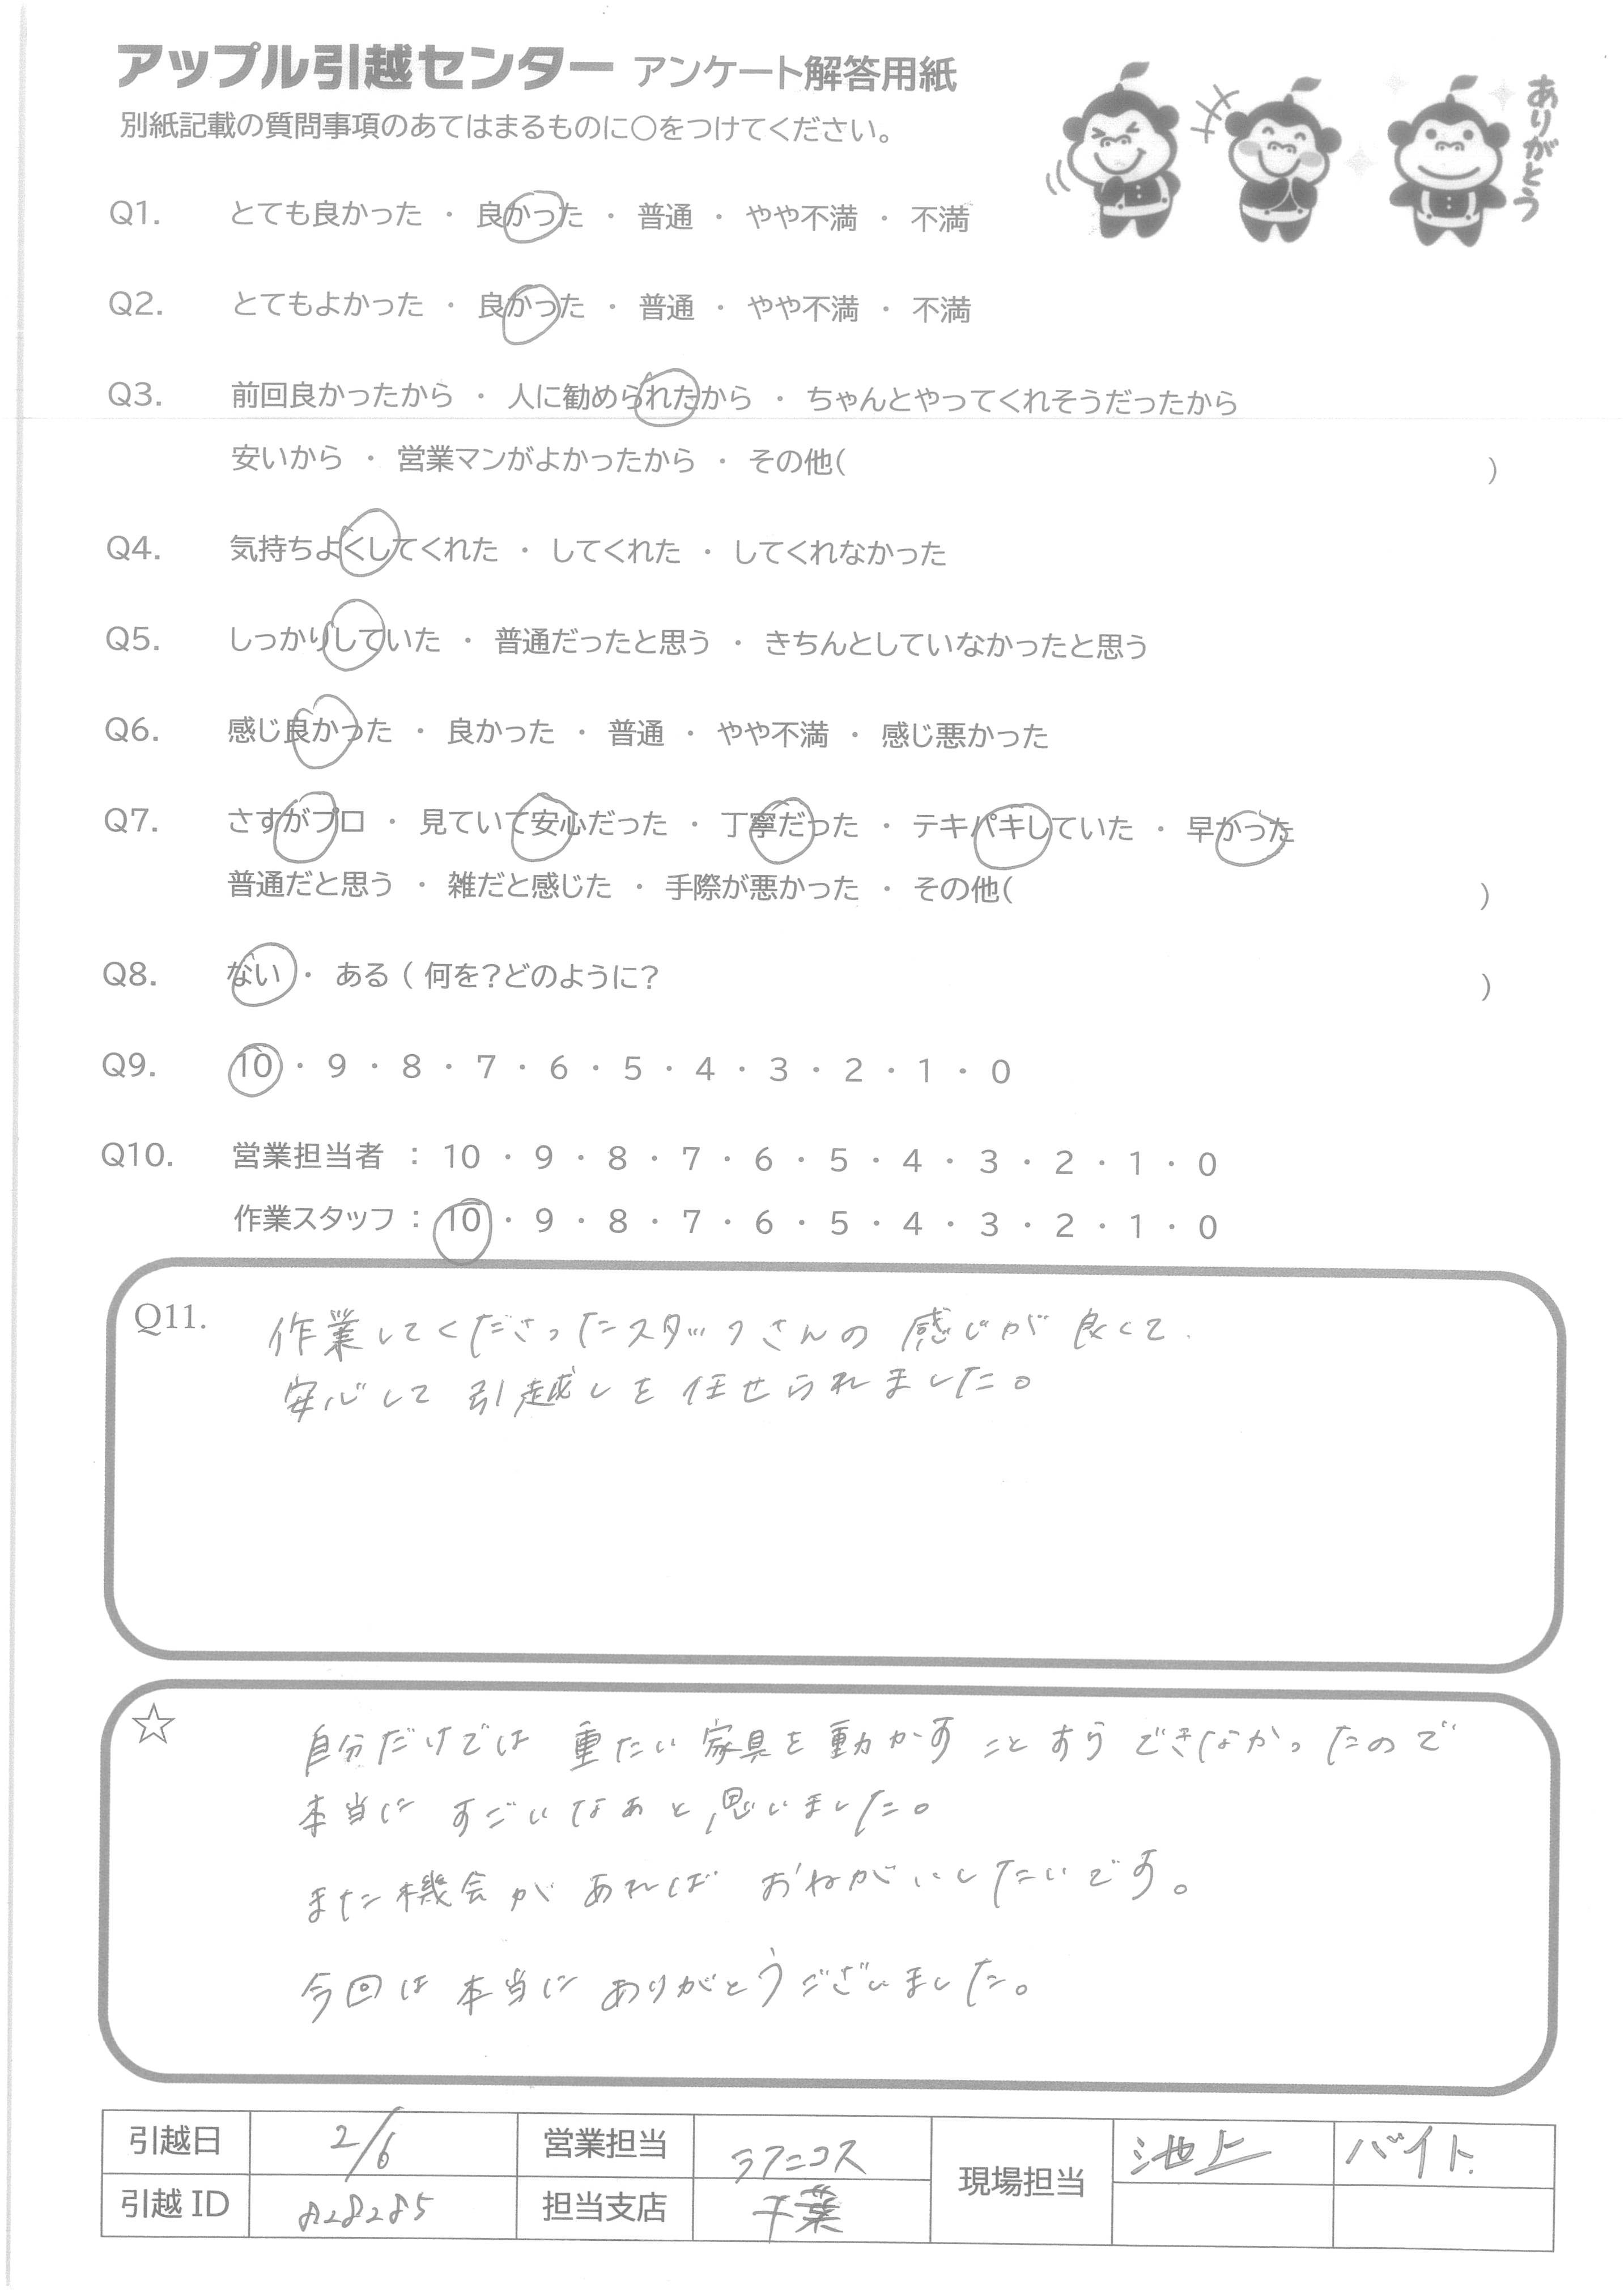 アップル引越センター アンケート解答用紙
別紙記載の質問事項のあてはまるものに○をつけてください。
ありがとう
Q1. とても良かった ・ 良かった ・ 普通 ・ やや不満 ・ 不満
Q2. とてもよかった ・ 良かった ・ 普通 ・ やや不満 ・ 不満
Q3. 前回良かったから ・ 人に勧められたから ・ ちゃんとやってくれそうだったから
安いから ・ 営業マンがよかったから ・ その他( )
Q4. 気持ちよくしてくれた ・ してくれた ・ してくれなかった
Q5. しっかりしていた ・ 普通だったと思う ・ きちんとしていなかったと思う
Q6. 感じ良かった ・ 良かった ・ 普通 ・ やや不満 ・ 感じ悪かった
Q7. さすがプロ ・ 見ていて安心だった ・ 丁寧だった ・ テキパキしていた ・ 早かった
普通だと思う ・ 雑だと感じた ・ 手際が悪かった ・ その他( )
Q8. ない ・ ある ( 何を？どのように？ )
Q9. 10 ・ 9 ・ 8 ・ 7 ・ 6 ・ 5 ・ 4 ・ 3 ・ 2 ・ 1 ・ 0
Q10. 営業担当者 ： 10 ・ 9 ・ 8 ・ 7 ・ 6 ・ 5 ・ 4 ・ 3 ・ 2 ・ 1 ・ 0
作業スタッフ ： 10 ・ 9 ・ 8 ・ 7 ・ 6 ・ 5 ・ 4 ・ 3 ・ 2 ・ 1 ・ 0
Q11. 作業してくださったスタッフさんの 感じが 良くて
安心して 引越しを 任せられました。
☆ 自分だけでは 重たい 家具を 動かす ことすら できなかったので
本当に すごいなぁと 思いました。
また機会が あれば おねがいしたいです。
今回は 本当に ありがとうございました。
引越日 2/6 営業担当 ラフニコス 現場担当 池上 バイト
引越 ID 828285 担当支店 千葉